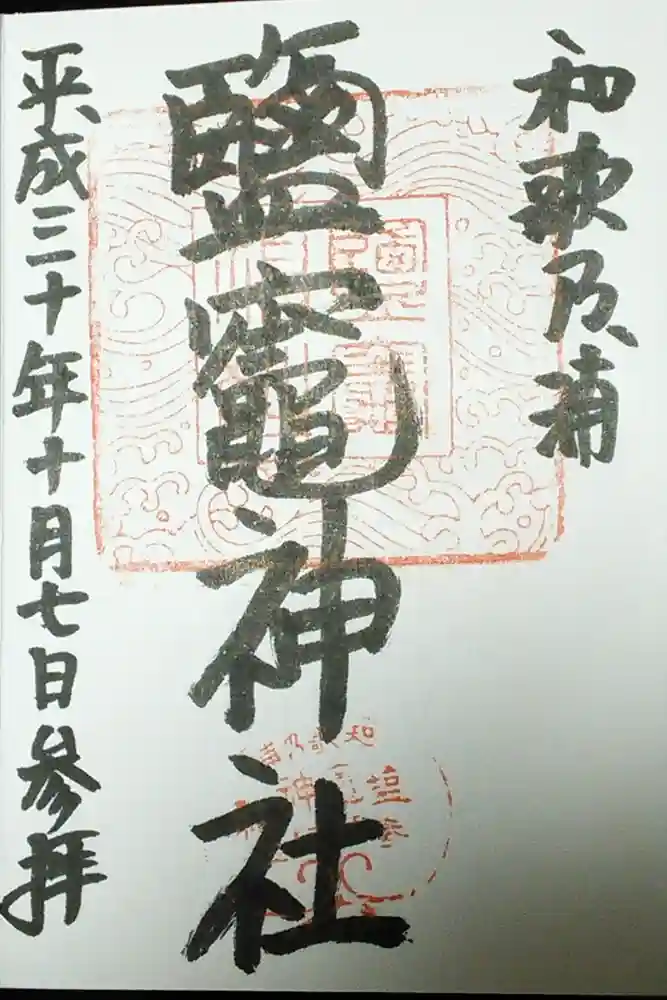 和歌乃浦
鹽竈神社
平成三十年十月七日参拝